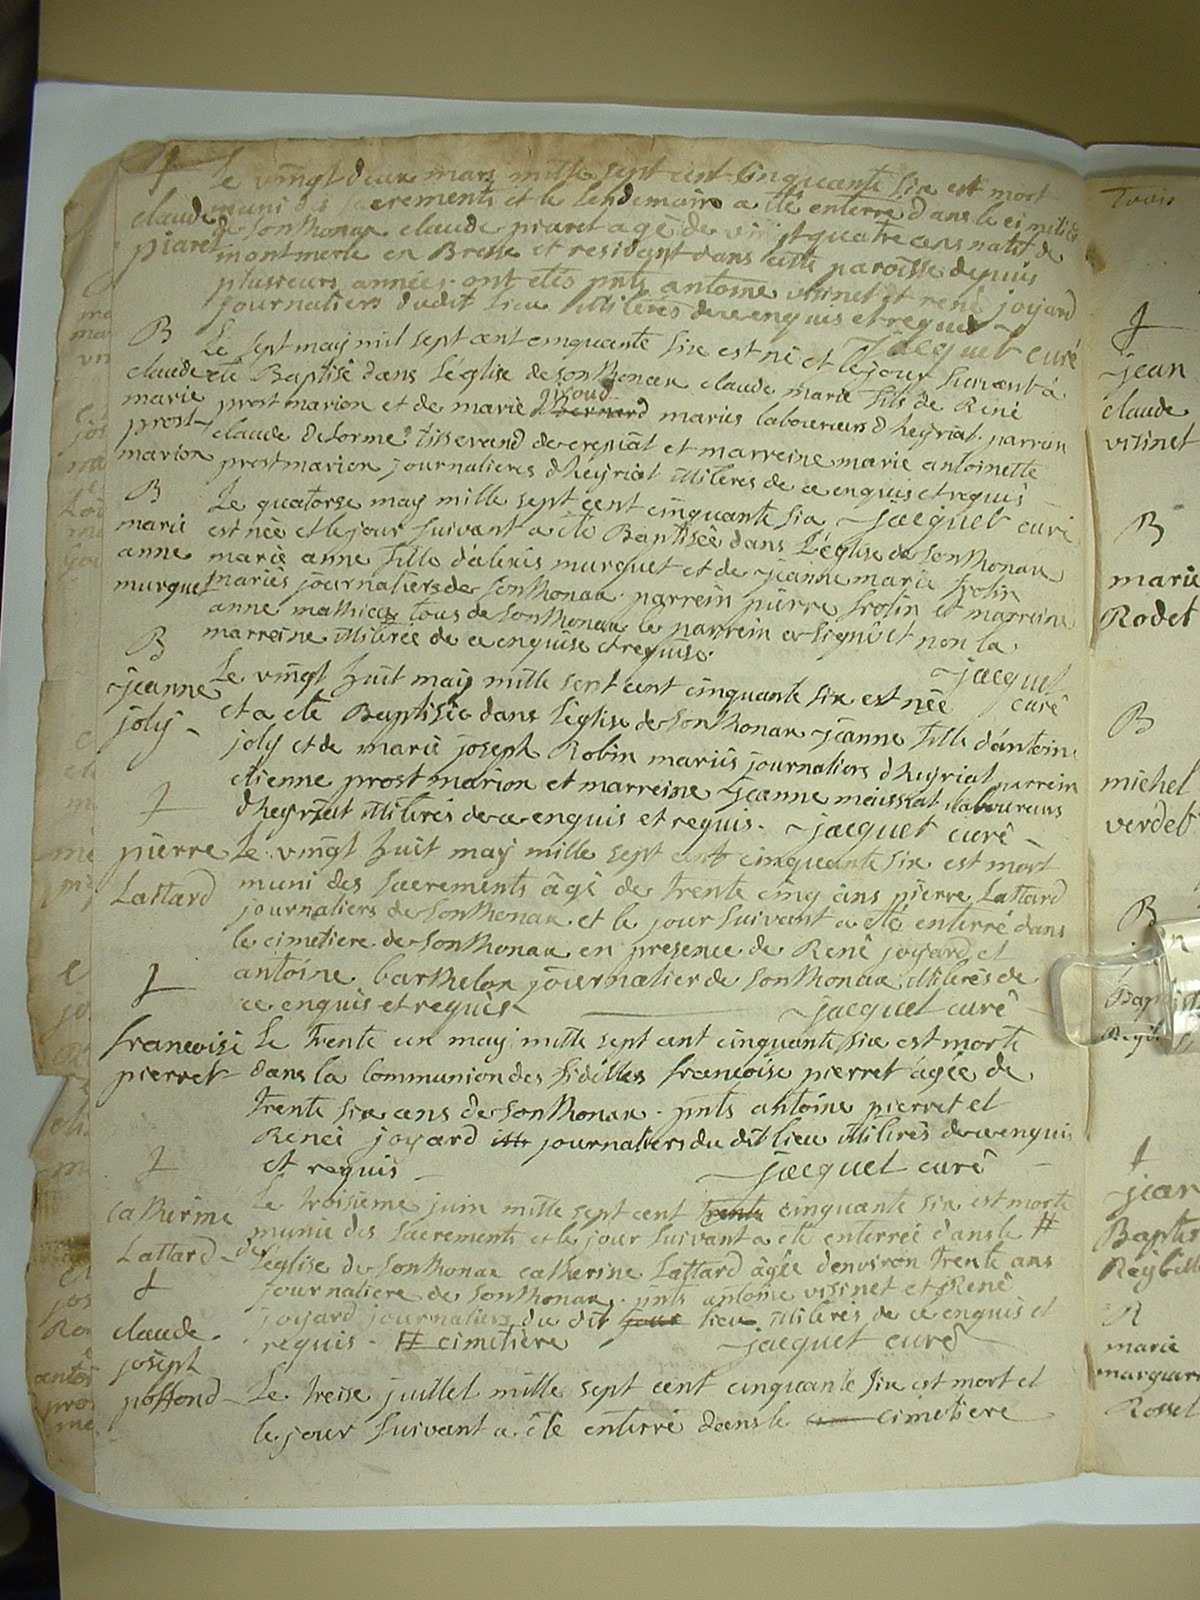 †
claude
piaret
Le vingt deux mars mille sept cent cinquante six est mort
muni des sacrements et le lendemain a été enterré dans le cimetiere
de Sonthonax claude piaret agè de vingt quatre ans natif de
montmerle en Bresse et residant dans cette paroisse depuis
plusieurs années. ont etés pnts antoine vitinet et renè joyard
journaliers dudit lieu illitérés de ce enquis et requis
Jacquet curé
B
claude
marie
prost
marion
Le sept may mil sept cent cinquante six est né et le jour suivant à
ete Baptisé dans L'église de Sonthonax claude marie fils de Renè
prost marion et de marie giroud bernard mariés laboureurs d'heyriat. parrein
claude delorme tisserand de crepiat et marreine marie antoinette
prost marion journalieres d'heyriat illitères de ce enquis et requis
Jacquet curé
B
marie
anne
murguet
Le quatorse may mille sept cent cinquante six
est née et le jour suivant a été Baptisée dans L'église de Sonthonax
marie anne fille d'alexis murguet et de jeanne marie frolin
mariés journaliers de Sonthonax. parrein pierre frolin et marreine
anne mathieu tous de Sonthonax le parrein a signé et non la
marreine illitérée de ce enquise et requise.
Jacquet
curé
B
jeanne
joly
Le vingt huit may mille sept cent cinquante six est née
et a été Baptisée dans L'église de Sonthonax jeanne fille d'antoine
joly et de marie joseph Robin mariés journaliers d'heyriat parrein
etienne prost marion et marreine jeanne maissiat laboureurs
d'heyriat illitérés de ce enquis et requis. Jacquet curé
†
pierre
Lattard
Le vingt huit may mille sept cent cinquante six est mort
muni des sacrements âgé de trente cinq ans pierre Lattard
journaliers de Sonthonax et le jour suivant a été enterré dans
le cimetiere de Sonthonax en presence de Renè joyard et
antoine barthelon journalier de Sonthonax illitérés de
ce enquis et requis
Jacquet curé
†
francoise
pierret
Le trente un may mille sept cent cinquante six est morte
dans la communion des fidelles francoise pierret âgée de
trente six ans de Sonthonax. pnts antoine pierret et
Renei joyard journaliers du dit lieu illitérés de ce enquis
et requis
Jacquet curé
†
catherine
Lattard
Le troisieme juin mille sept cent trente cinquante six est morte
munie des sacrements et le jour suivant a été enterreé dans le #
de L'église de Sonthonax catherine Lattard âgée d'environ trente ans
journaliere de Sonthonax. pnts antoine vitinet et Renè
joyard journaliers du dit jour lieu illitérés de ce enquis et
requis. # cimetière
Jacquet curé
†
claude
joseph
poffond
Le treise juillet mille sept cent cinquante six est mort et
le jour suivant a été enterré dans le cimetiere
Trois
†
jean
claude
vitinet
B
marie
Rodet
B
michel
verdet
B
†
jean
Baptis
Reybille
B
marie
marguer
Rosset